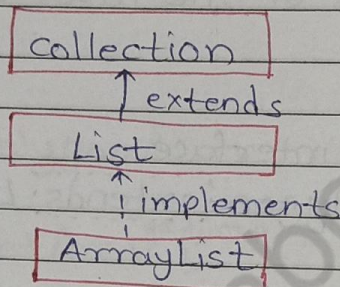 Collection
extends
List
implements
ArrayList